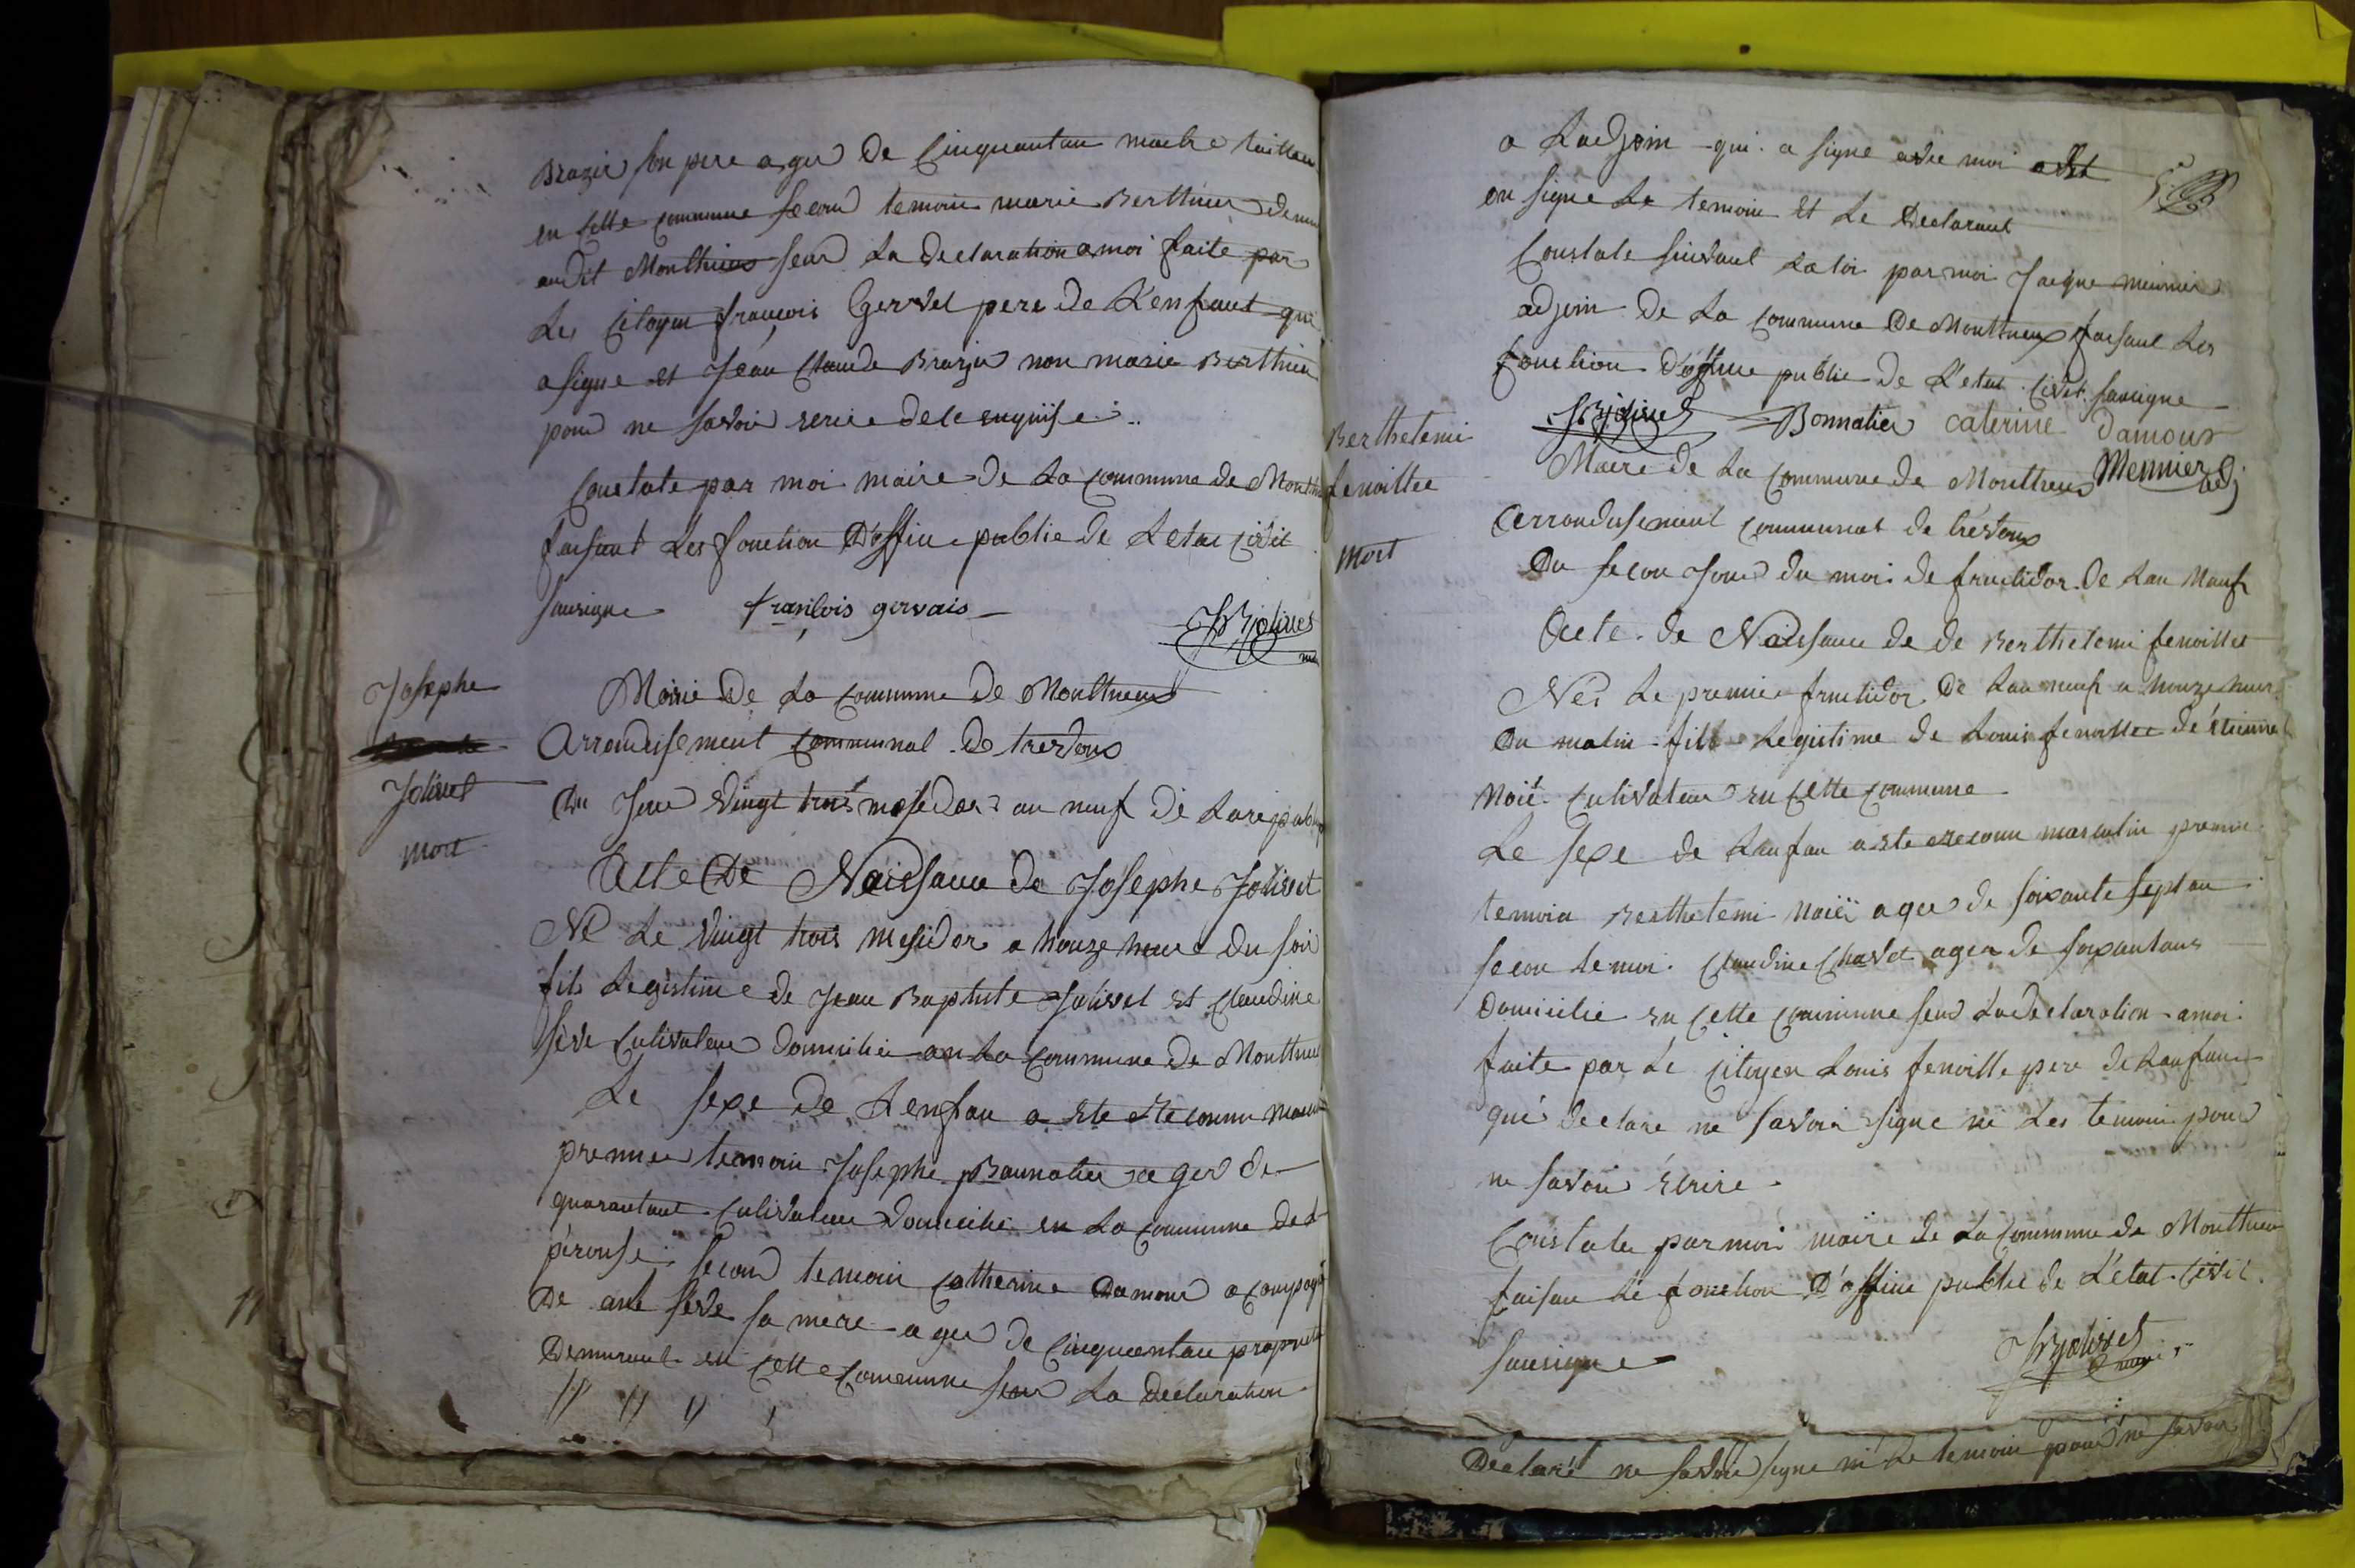 Brazier son pere ager de Cinquantan maitre tailleur
en Cette Commune second temoin marie Berthier demeu
audit Monthieux seur La declaration a moi faite par
Le Citoyen françois Gervet pere de L'enfant qui
a signe et Jean Claude Brazier non marie Berthier
pour ne savoir de le enquise
Constate par moi maire de La Commune de Month
faisant Les fonction D'offiee publie de Letat Civil
sousigne françois gervais JBJolivet
Josephe
Jolivet
mort
Mairie De La Commune De Monthieux
Arrondisement Communal de trevoux
Du Jour vingt trois mesidor an neuf de La republi
Acte De Naissance de Josephe Jolivet
Né Le vingt trois mesidor a honze heure du soir
fils Legistime de Jean Baptiste Jolivet et Claudine
séve Cultivateur domicilié en La Commune de Monthieu
Le sexe de Lenfan a ete reconnu mascu
premier temoin Josephe Bonnatier ager de
quarantant Cultivateur domicilie en La Commune de
pérouse second temoin Catherine Damour
De séve sa mere ager de Cinquantan propriet
Demeurant en Cette Commune seur La declaration
a Ladjoin qui a signe avec moi
on signe Le temoin et Le Declarant
Constate suivant La loi par moi Jacque meunier
adjoin de La Commune De Monthieux faisant Les
fonction D'offiee publie de L'etat Civil sousigne
JBJolivet Bonnatier caterine Damour
Meunier adj
Berthelemi
fenoillee
mort
Maire de La Commune de Monthieux
Arrondisement Communal de trévoux
Du secon Jour du moi de fructidor De Lan Neuf
Acte de Naissance de de Berthelemi fenoillet
Né Le premier fructidor De Lan neuf a honze heur
Du matin fils Legistime de Louis fenoillet de étiennet
Noié Cultivateur en Cette Commune
Le sexe de Lenfan a ete reconu masculin premier
temoin Berthelemi Noié ager de soixante sept an
secon temoi Claudine Chavet ager de soixantans
Domicilie en Cette Commune seur La declaration a moi
faite par Le Citoyen Louis fenoille pere de Lanfan
qui declare ne savoir signe ni Les temoin pour
ne savoir écrire
Constate par moi maire de La Commune de Monthieu
faisan Lé fonction D'offiee publie de L'état Civil
sousigne JBJolivet maire
Declaré ne savoir signe ni Le temoin pour ne savoir